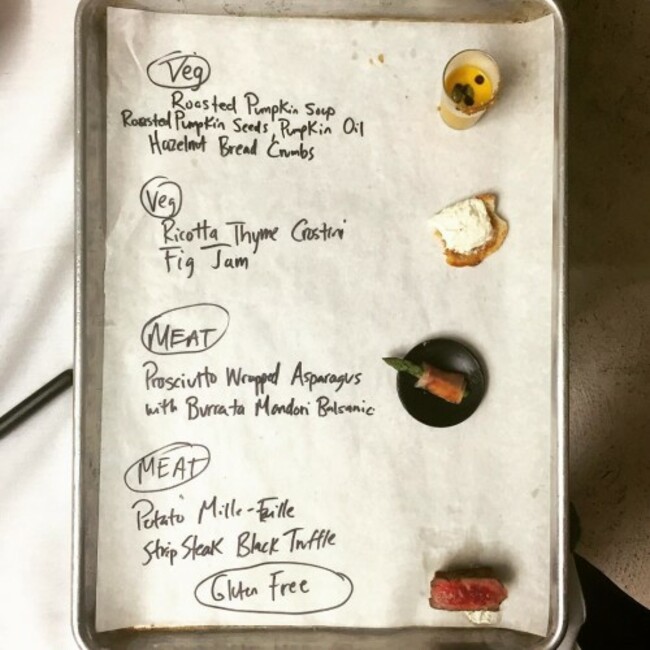 Veg
Roasted Pumpkin Soup
Roasted Pumpkin Seeds, Pumpkin Oil
Hazelnut Bread Crumbs
Veg
Ricotta Thyme Crostini
Fig Jam
MEAT
Prosciutto Wrapped Asparagus
with Burrata Mandori Balsamic
MEAT
Potato Mille-Faille
Strip Steak Black Truffle
Gluten Free